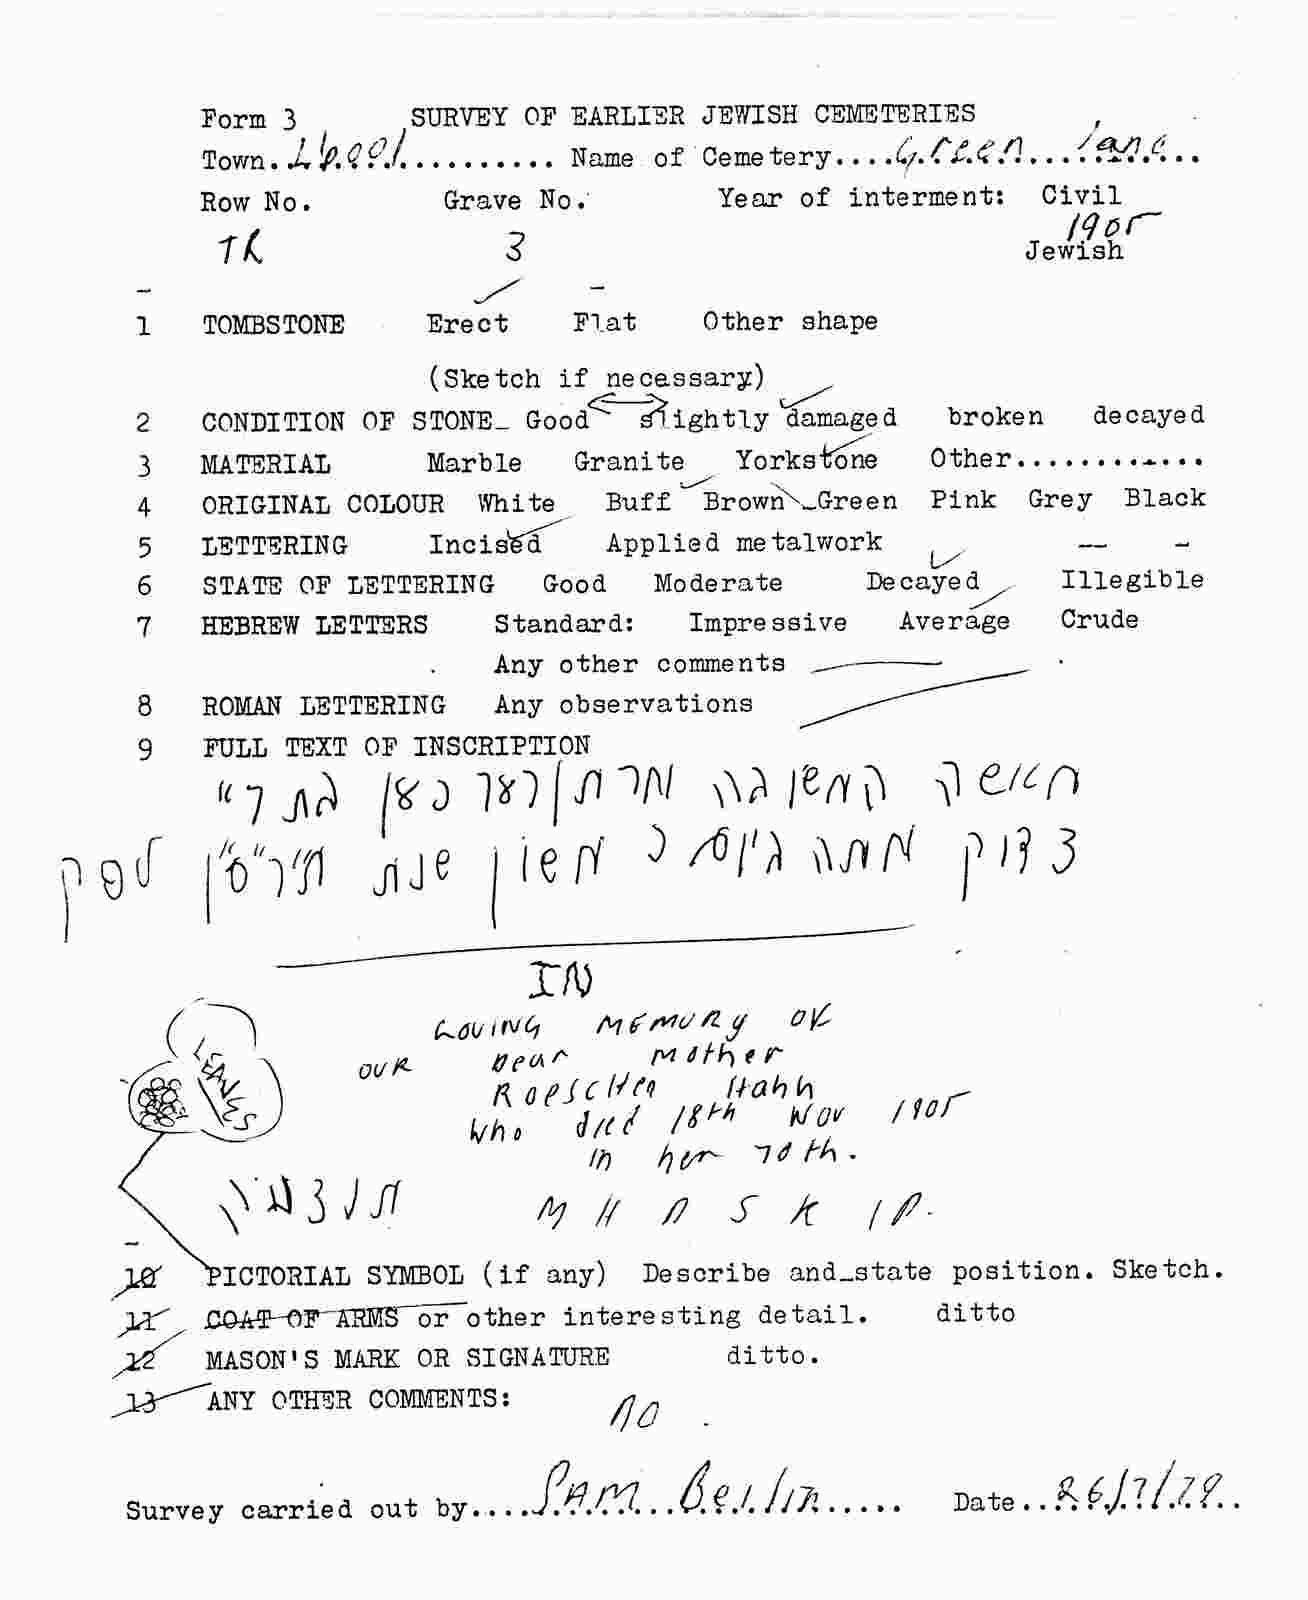 Form 3 SURVEY OF EARLIER JEWISH CEMETERIES
Town. L'pool .......... Name of Cemetery.... Green lane
Row No. Grave No. Year of interment: Civil
1905
TR 3 Jewish
1 TOMBSTONE Erect Flat Other shape
(Sketch if necessary)
2 CONDITION OF STONE_ Good slightly damaged broken decayed
3 MATERIAL Marble Granite Yorkstone Other............
4 ORIGINAL COLOUR White Buff Brown Green Pink Grey Black
5 LETTERING Incised Applied metalwork
6 STATE OF LETTERING Good Moderate Decayed Illegible
7 HEBREW LETTERS Standard: Impressive Average Crude
Any other comments
8 ROMAN LETTERING Any observations
9 FULL TEXT OF INSCRIPTION
האשה מרת בת ר"
צדוק שנת לפק
IN
LOVING MEMORY OF
OUR Dear Mother
ROESCHEN Hahn
Who died 18th Nov 1905
in her 70th.
LEAVES
M H A S K I P.
10 PICTORIAL SYMBOL (if any) Describe and_state position. Sketch.
11 COAT OF ARMS or other interesting detail. ditto
12 MASON'S MARK OR SIGNATURE ditto.
13 ANY OTHER COMMENTS:
no
Survey carried out by.... SAM Berlin ..... Date.. 26/7/79